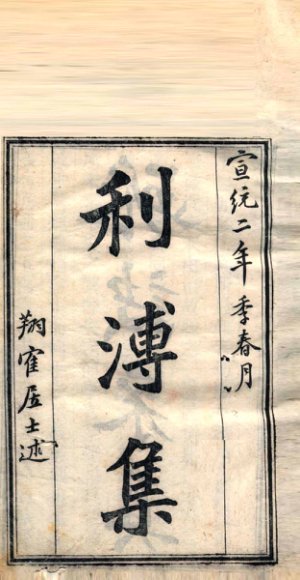 宣统二年季春月
利溥集
翔寉居士述